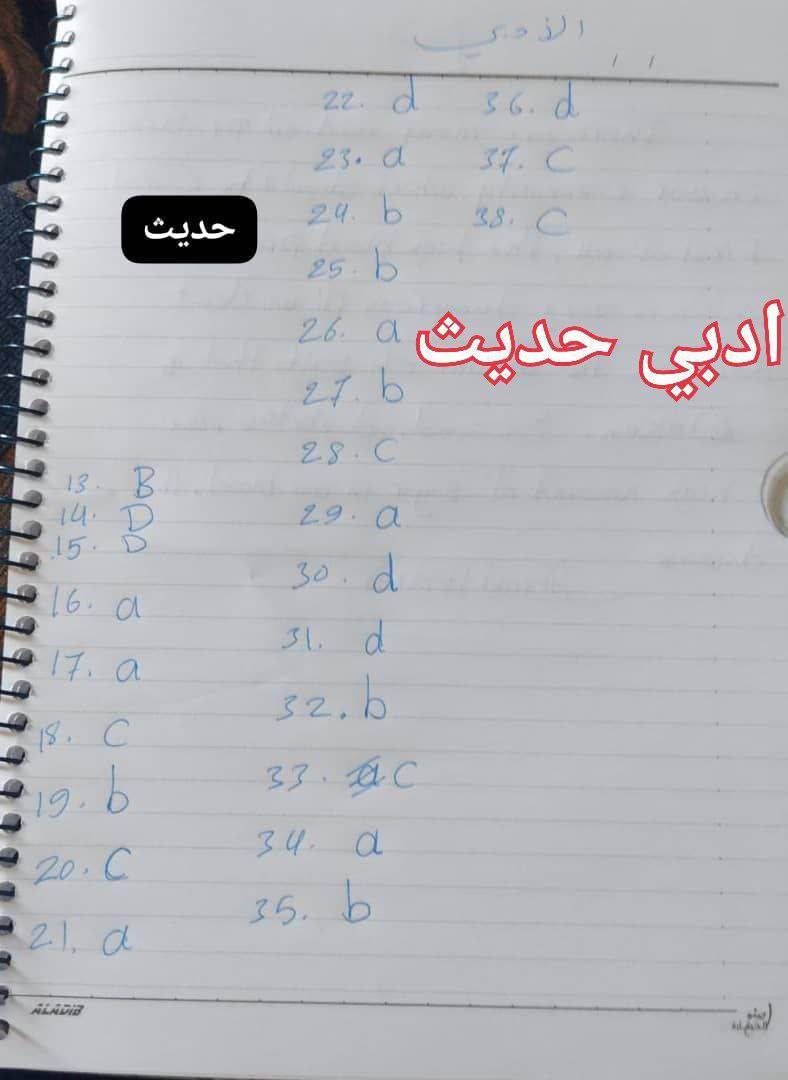 الادبي
/ /
13. B
14. D
15. D
16. a
17. a
18. C
19. b
20. C
21. a
22. d
23. a
24. b
25. b
26. a
27. b
28. C
29. a
30. d
31. d
32. b
33. C
34. a
35. b
36. d
37. C
38. C
حديث
ادبي حديث
ALADIB